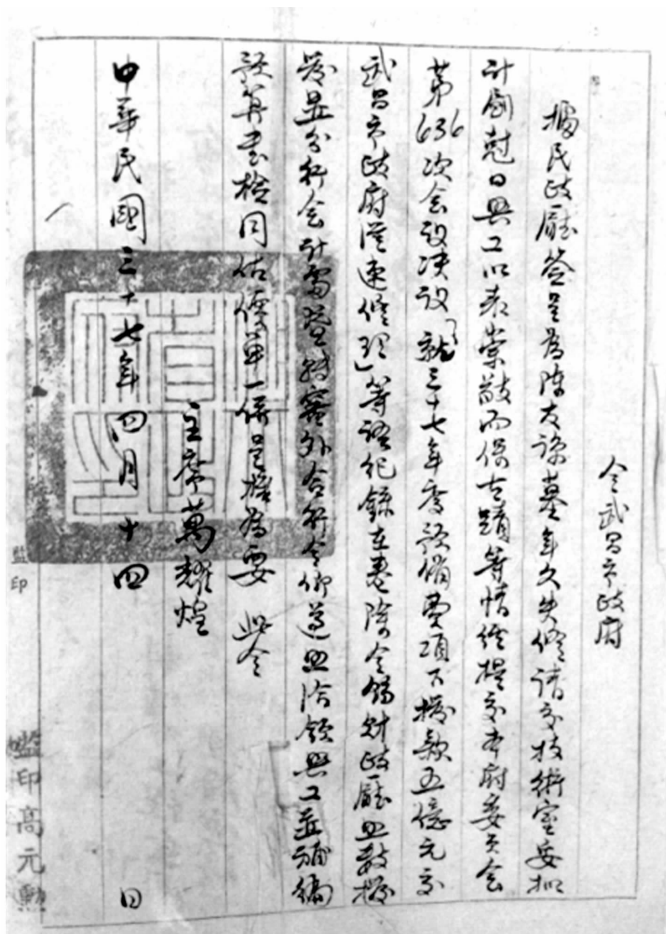 令武昌市政府
據民政廳簽呈為陳友諒墓年久失修請交技術室妥擬
計劃尅日興工以表崇敬而保古蹟等情經提交本府委員會
第636次會議決議「就三十七年度預備費項下撥款五億元交
武昌市政府從速修理」等語紀錄在卷除令飭財政廳照數撥
發並分行會計處登賬審外合行令仰遵照洽領興工並補編
預算書檢同估價單一併呈核為要 此令
主席萬耀煌
中華民國三十七年四月十四日
監印
監印高元勳